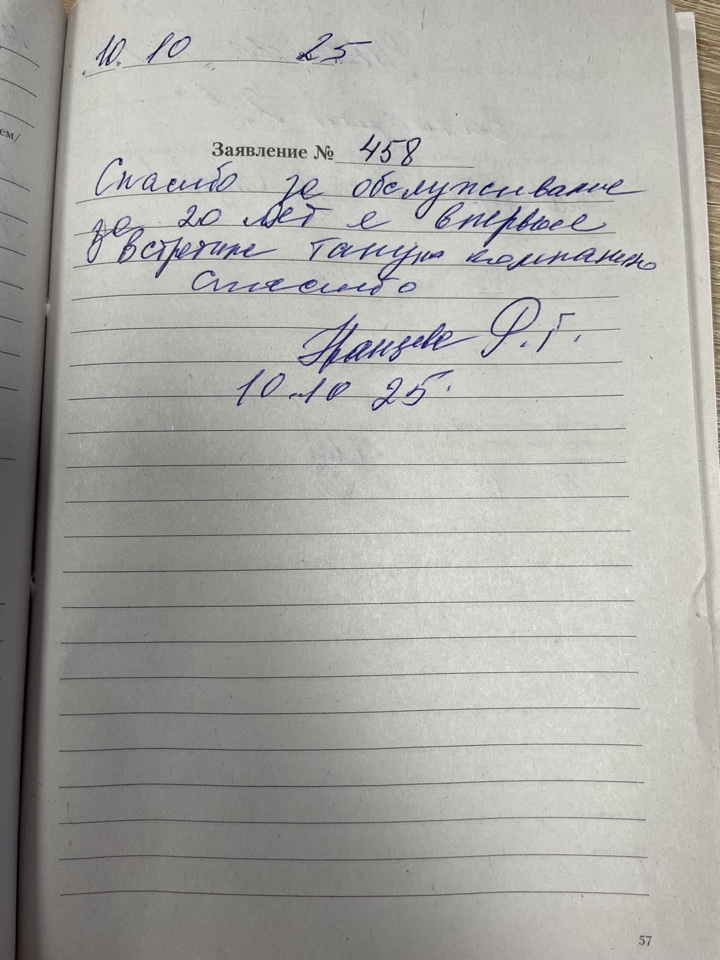 10. 10 25
Заявление № 458
Спасибо за обслуживание
за 20 лет я впервые
встретила такую компанию
Спасибо
Р. Г.
10.10 25.
57